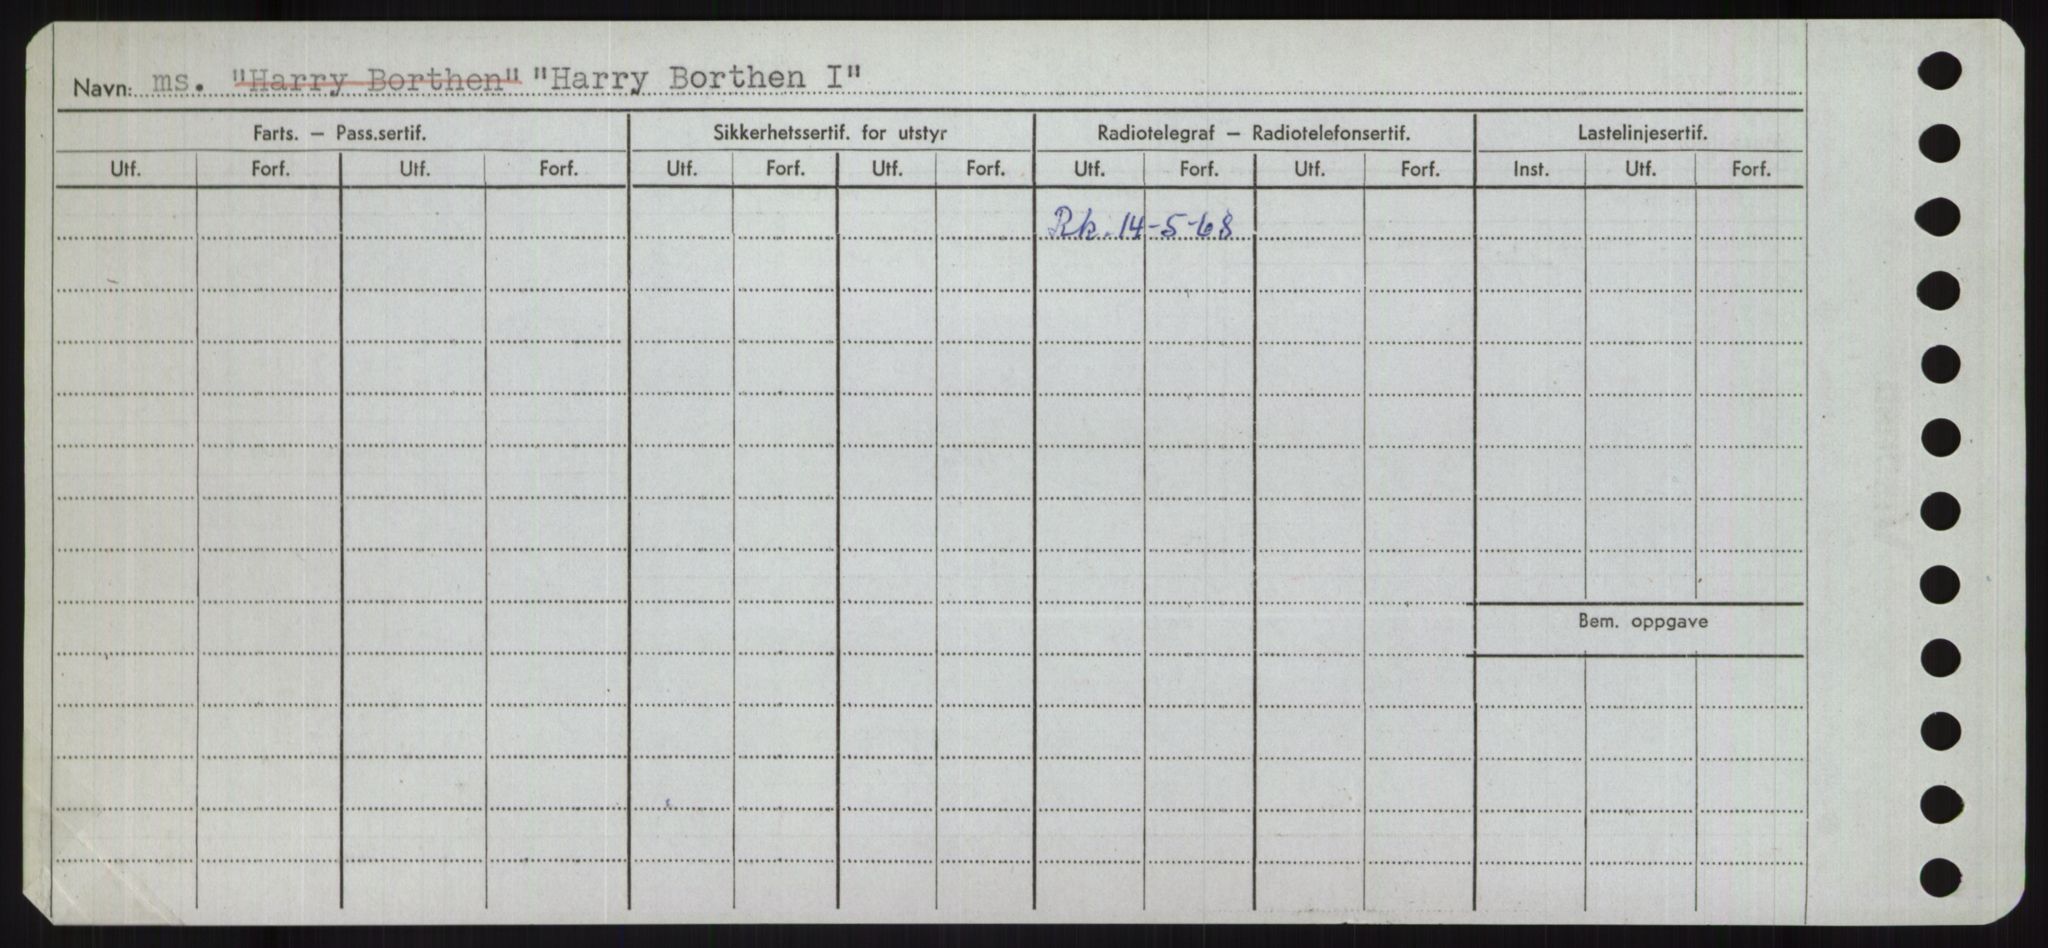 Navn: ms. "Harry Borthen" "Harry Borthen I"
Farts. — Pass.sertif. Sikkerhetssertif. for utstyr Radiotelegraf — Radiotelefonsertif. Lastelinjesertif.
Utf. Forf. Utf. Forf. Utf. Forf. Utf. Forf. Utf. Forf. Utf. Forf. Inst. Utf. Forf.
Rk. 14-5-68
Bem. oppgave